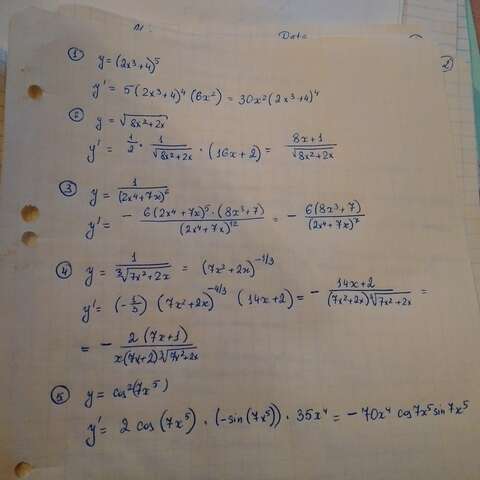 №: Date
① y = (2x³+4)⁵
y' = 5(2x³+4)⁴(6x²) = 30x²(2x³+4)⁴
② y = √(8x²+2x)
y' = 1/2 · 1/√(8x²+2x) · (16x+2) = (8x+1)/√(8x²+2x)
③ y = 1/(2x⁴+7x)⁶
y' = - 6(2x⁴+7x)⁵·(8x³+7)/(2x⁴+7x)¹² = - 6(8x³+7)/(2x⁴+7x)⁷
④ y = 1/∛(7x²+2x) = (7x²+2x)^(-1/3)
y' = (-1/3) (7x²+2x)^(-4/3) (14x+2) = - (14x+2)/((7x²+2x)∛(7x²+2x)) =
= - 2(7x+1)/(x(7x+2)∛(7x²+2x))
⑤ y = cos²(7x⁵)
y' = 2 cos(7x⁵) · (-sin(7x⁵)) · 35x⁴ = -70x⁴ cos7x⁵ sin7x⁵